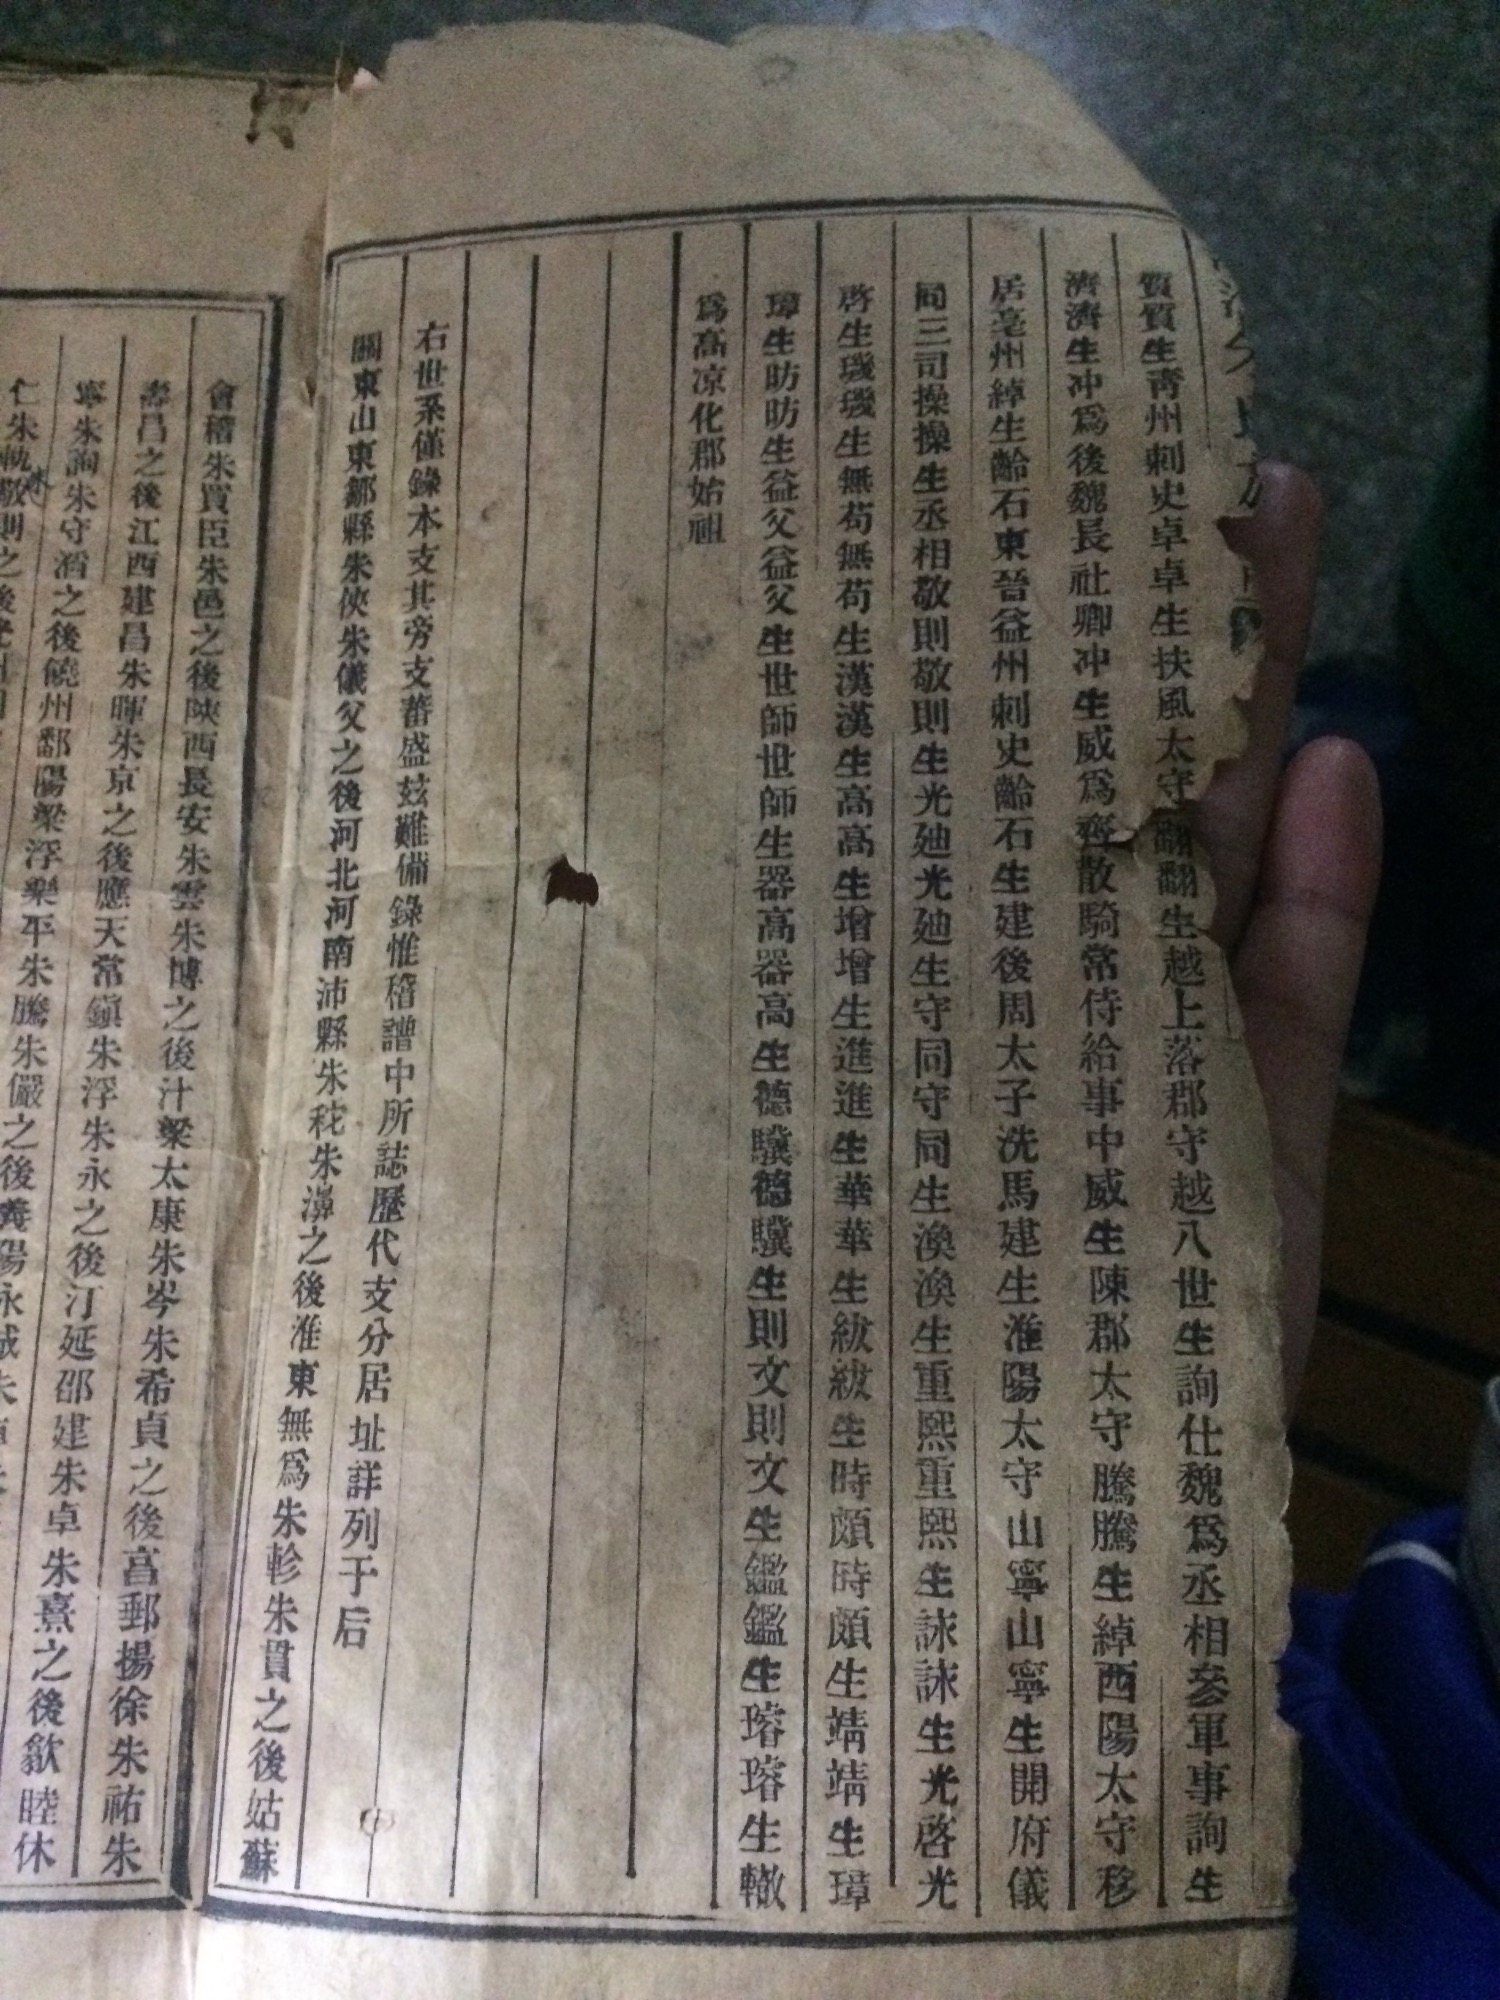 質質生靑州刺史卓卓生扶風太守翻翻生越上落郡守越八世生詢仕魏爲丞相參軍事詢生
濟濟生冲爲後魏長社卿冲生威爲齊散騎常侍給事中威生陳郡太守騰騰生綽西陽太守移
居亳州綽生齡石東晉益州刺史齡石生建後周太子洗馬建生淮陽太守山寧山寧生開府儀
同三司操操生丞相敬則敬則生光廸光廸生守同守同生渙渙生重熙重熙生詠詠生光啓光
啓生璣璣生無苟無苟生漢漢生高高生增增生進進生華華生紱紱生時頗時頗生靖靖生璋
璋生昉昉生益父益父生世師世師生器高器高生德驥德驥生則文則文生鑑鑑生璿璿生轍
爲高凉化郡始祖
右世系僅錄本支其旁支蕃盛玆難備錄惟稽譜中所誌歷代支分居址詳列于后
關東山東鄒縣朱俠朱儀父之後河北河南沛縣朱秺朱濞之後淮東無爲朱軫朱貫之後姑蘇
會稽朱買臣朱邑之後陜西長安朱雲朱博之後汁梁太康朱岑朱希貞之後高郵揚徐朱祐朱
壽昌之後江西建昌朱暉朱京之後應天常鎭朱浮朱永之後汀延邵建朱卓朱熹之後歙睦休
寧朱詢朱守滔之後饒州鄱陽梁浮樂平朱騰朱儼之後
仁朱執敬則之後